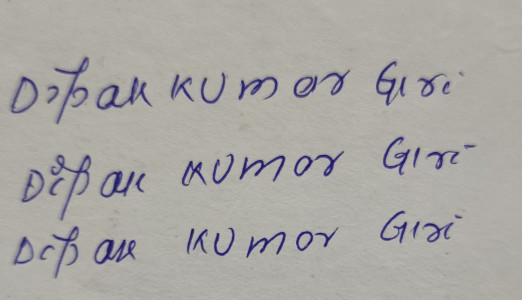 Dipak KUmar Giri
Dipak KUmar Giri
Dipak KUmar Giri